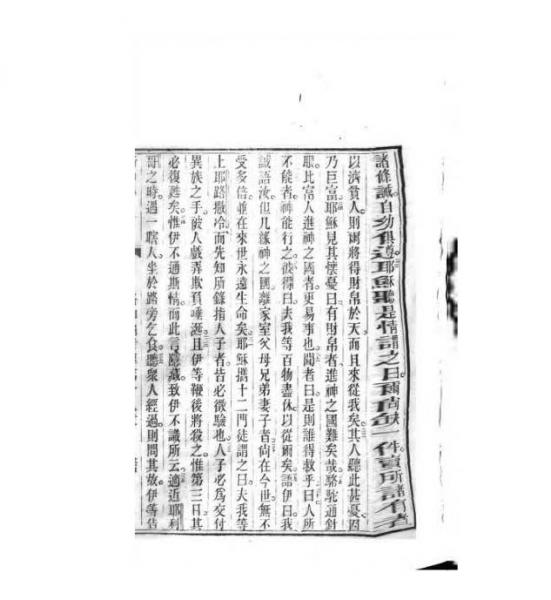 諸條誡。自幼俱遵。耶穌聽是情。謂之曰。爾尚缺一件。賣所諸有者。
以濟貧人。則爾將得財帛於天。而且來從我矣。其人聽此甚憂。因
乃巨富。耶穌見其懷憂曰。有財帛者。進神之國難矣哉。駱駝通針
眼。比富人進神之國者。更易事也。聞者曰。是則誰得救乎。曰。人所
不能者。神能行之。彼得曰。夫我等百物盡休。以從爾矣。語伊曰。我
誠語汝。但凡緣神之國離家室父母兄弟妻子者。尚在今世。無不
受多倍。並在來世永遠生命矣。耶穌攜十二門徒謂之曰。夫我等
上耶路撒冷。而先知所錄指人子者。皆必徵驗也。人子必為交付
異族之手。被人戲弄欺負唾涎。且伊等鞭後將殺之。惟第三日其
必復甦矣。惟伊不通斯情。而此言隱藏。致伊不識所云。適近耶利
哥之時。遇一瞎人。坐於路旁乞食。聽眾人經過。則問其故。伊等告